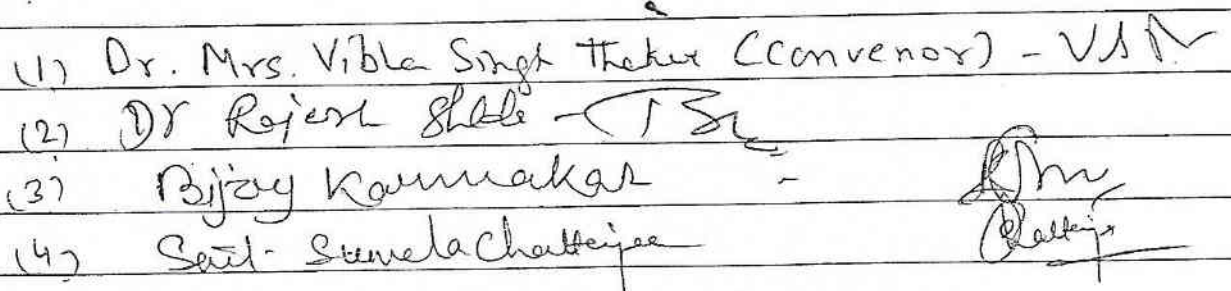 (1) Dr. Mrs. Vibha Singh Thakur (Convenor) -
(2) Dr Rajesh -
(3) Bijoy Karmakar -
(4) Smt. Chatterjee Chatterjee